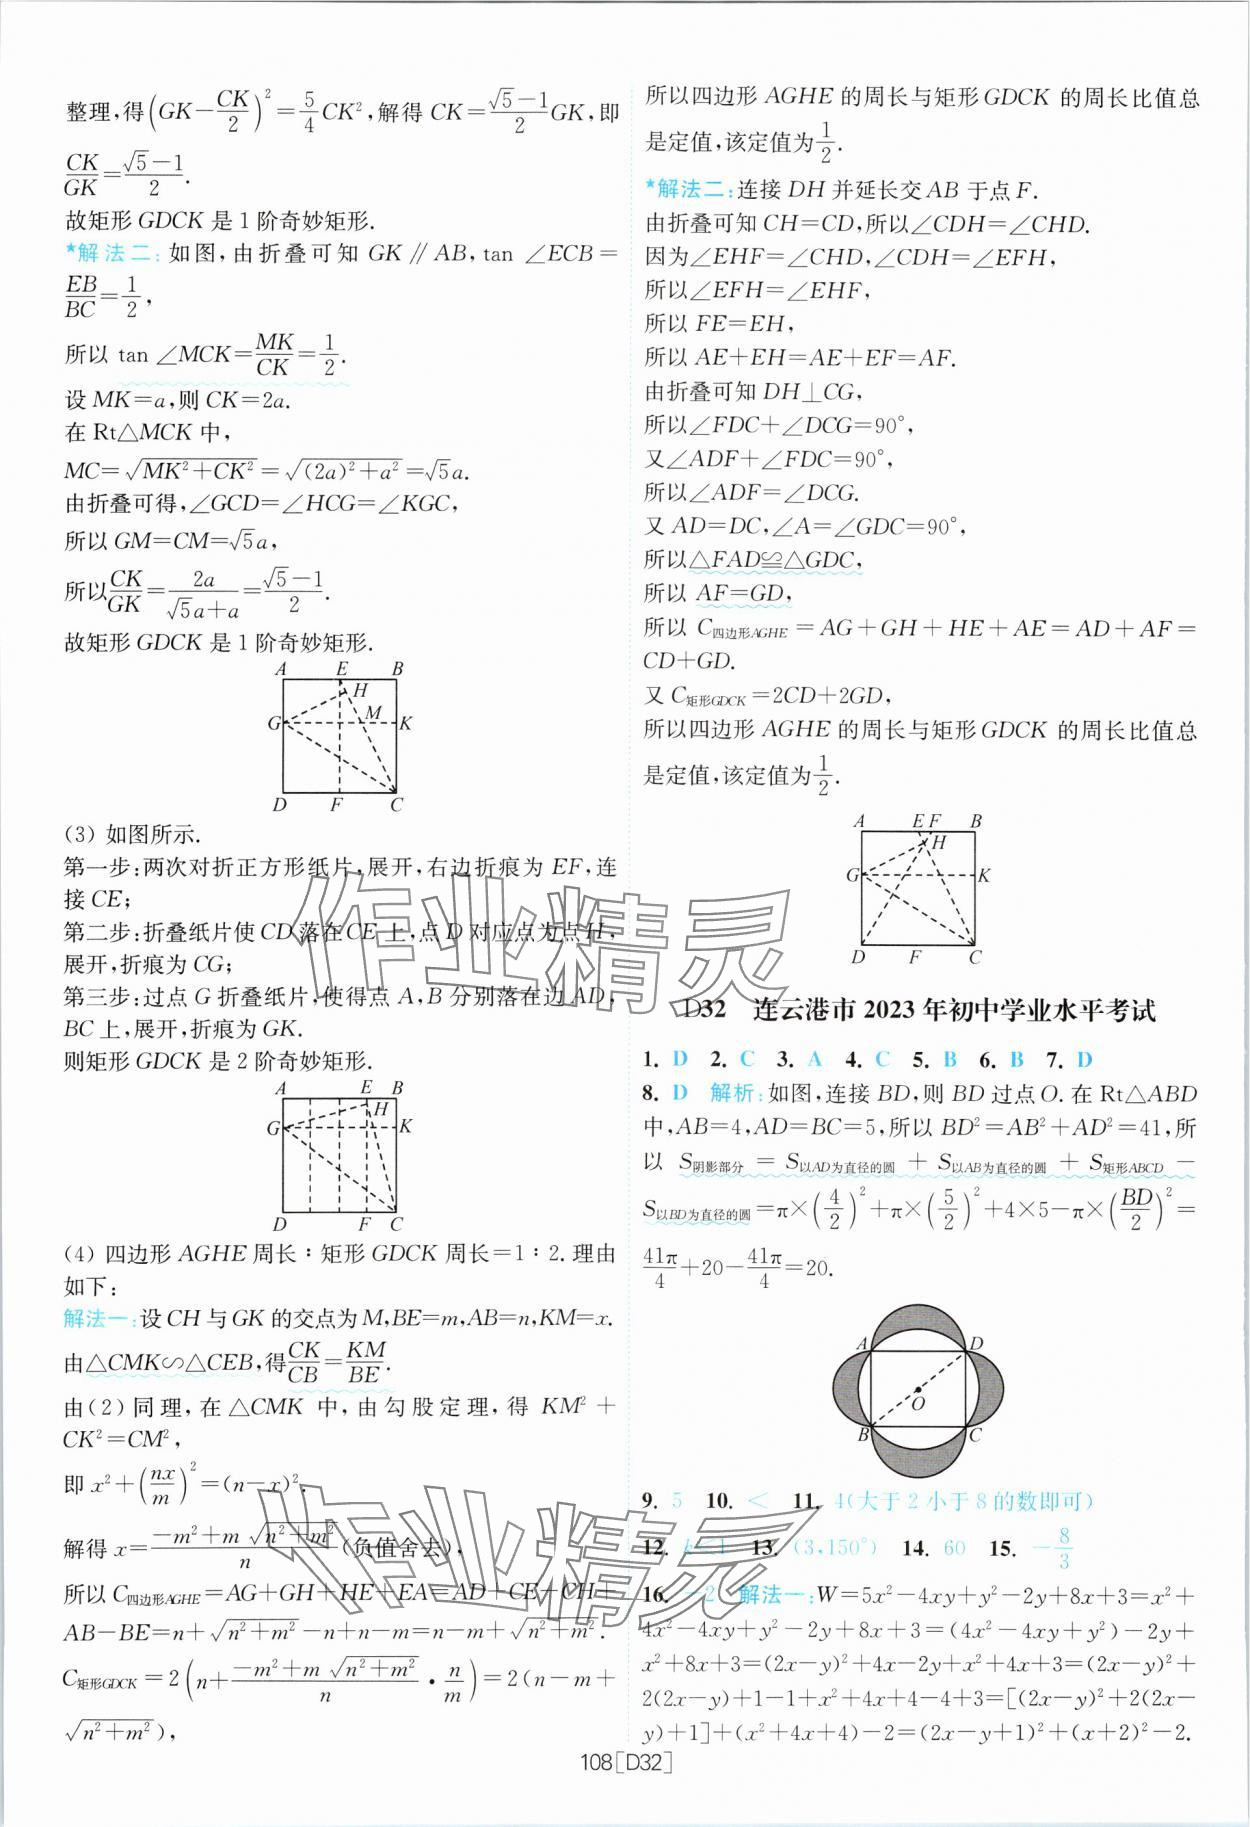 整理,得(GK-CK/2)²=5/4CK²,解得 CK=(√5-1)/2 GK,即
CK/GK=(√5-1)/2.
故矩形 GDCK 是 1 阶奇妙矩形.
*解法二:如图,由折叠可知 GK∥AB,tan ∠ECB=
EB/BC=1/2,
所以 tan ∠MCK=MK/CK=1/2.
设 MK=a,则 CK=2a.
在 Rt△MCK 中,
MC=√(MK²+CK²)=√((2a)²+a²)=√5a.
由折叠可得,∠GCD=∠HCG=∠KGC,
所以 GM=CM=√5a,
所以CK/GK=2a/(√5a+a)=(√5-1)/2.
故矩形 GDCK 是 1 阶奇妙矩形.
A E B
H
G M K
D F C
(3) 如图所示.
第一步:两次对折正方形纸片,展开,右边折痕为 EF,连
接 CE;
第二步:折叠纸片使 CD 落在 CE 上,点 D 对应点为点 H,
展开,折痕为 CG;
第三步:过点 G 折叠纸片,使得点 A,B 分别落在边 AD,
BC 上,展开,折痕为 GK.
则矩形 GDCK 是 2 阶奇妙矩形.
A E B
H
G K
D F C
(4) 四边形 AGHE 周长∶矩形 GDCK 周长=1∶2. 理由
如下:
解法一:设 CH 与 GK 的交点为 M,BE=m,AB=n,KM=x.
由△CMK∽△CEB,得CK/CB=KM/BE.
由(2) 同理,在 △CMK 中,由勾股定理,得 KM²+
CK²=CM²,
即 x²+(nx/m)²=(n-x)².
解得 x=(-m²+m√(n²+m²))/n(负值舍去),
所以 C四边形AGHE=AG+GH+HE+EA=AD-CE+CH+
AB-BE=n+√(n²+m²)-n+n-m=n-m+√(n²+m²).
C矩形GDCK=2(n+(-m²+m√(n²+m²))/n·n/m)=2(n-m+
√(n²+m²)),
所以四边形 AGHE 的周长与矩形 GDCK 的周长比值总
是定值,该定值为1/2.
*解法二:连接 DH 并延长交 AB 于点 F.
由折叠可知 CH=CD,所以∠CDH=∠CHD.
因为∠EHF=∠CHD,∠CDH=∠EFH,
所以∠EFH=∠EHF,
所以 FE=EH,
所以 AE+EH=AE+EF=AF.
由折叠可知 DH⊥CG,
所以∠FDC+∠DCG=90°,
又∠ADF+∠FDC=90°,
所以∠ADF=∠DCG.
又 AD=DC,∠A=∠GDC=90°,
所以△FAD≌△GDC,
所以 AF=GD,
所以 C四边形AGHE=AG+GH+HE+AE=AD+AF=
CD+GD.
又 C矩形GDCK=2CD+2GD,
所以四边形 AGHE 的周长与矩形 GDCK 的周长比值总
是定值,该定值为1/2.
A E F B
H
G K
D F C
D32 连云港市 2023 年初中学业水平考试
1. D 2. C 3. A 4. C 5. B 6. B 7. D
8. D 解析:如图,连接 BD,则 BD 过点 O. 在 Rt△ABD
中,AB=4,AD=BC=5,所以 BD²=AB²+AD²=41,所
以 S阴影部分=S以AD为直径的圆+S以AB为直径的圆+S矩形ABCD-
S以BD为直径的圆=π×(4/2)²+π×(5/2)²+4×5-π×(BD/2)²=
41π/4+20-41π/4=20.
A D
O
B C
9. 5 10. < 11. 4(大于 2 小于 8 的数即可)
12. k<1 13. (3,150°) 14. 60 15. -8/3
16. -2 解法一:W=5x²-4xy+y²-2y+8x+3=x²+
4x²-4xy+y²-2y+8x+3=(4x²-4xy+y²)-2y+
x²+8x+3=(2x-y)²+4x-2y+x²+4x+3=(2x-y)²+
2(2x-y)+1-1+x²+4x+4-4+3=[(2x-y)²+2(2x-
y)+1]+(x²+4x+4)-2=(2x-y+1)²+(x+2)²-2.
108[D32]
作业精灵
作业精灵